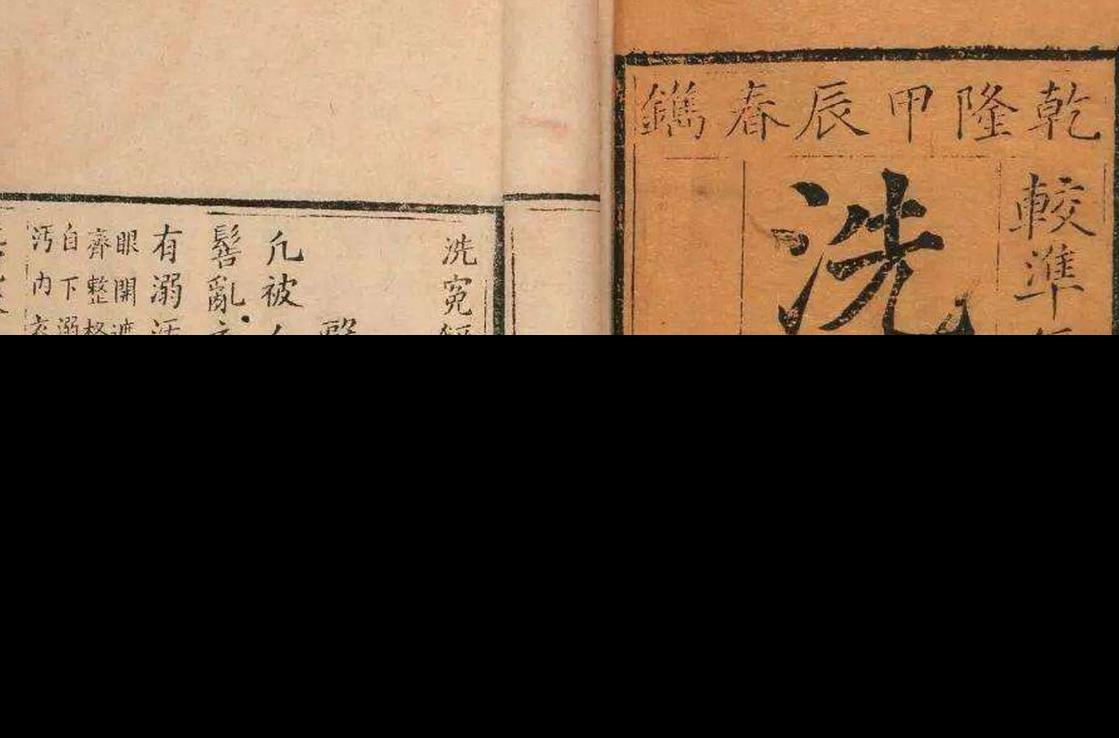 乾隆甲辰春鐫
較準
洗
洗冤
凡被
髻亂
有溺
眼開遮
齊整
自下溺
汚内衣